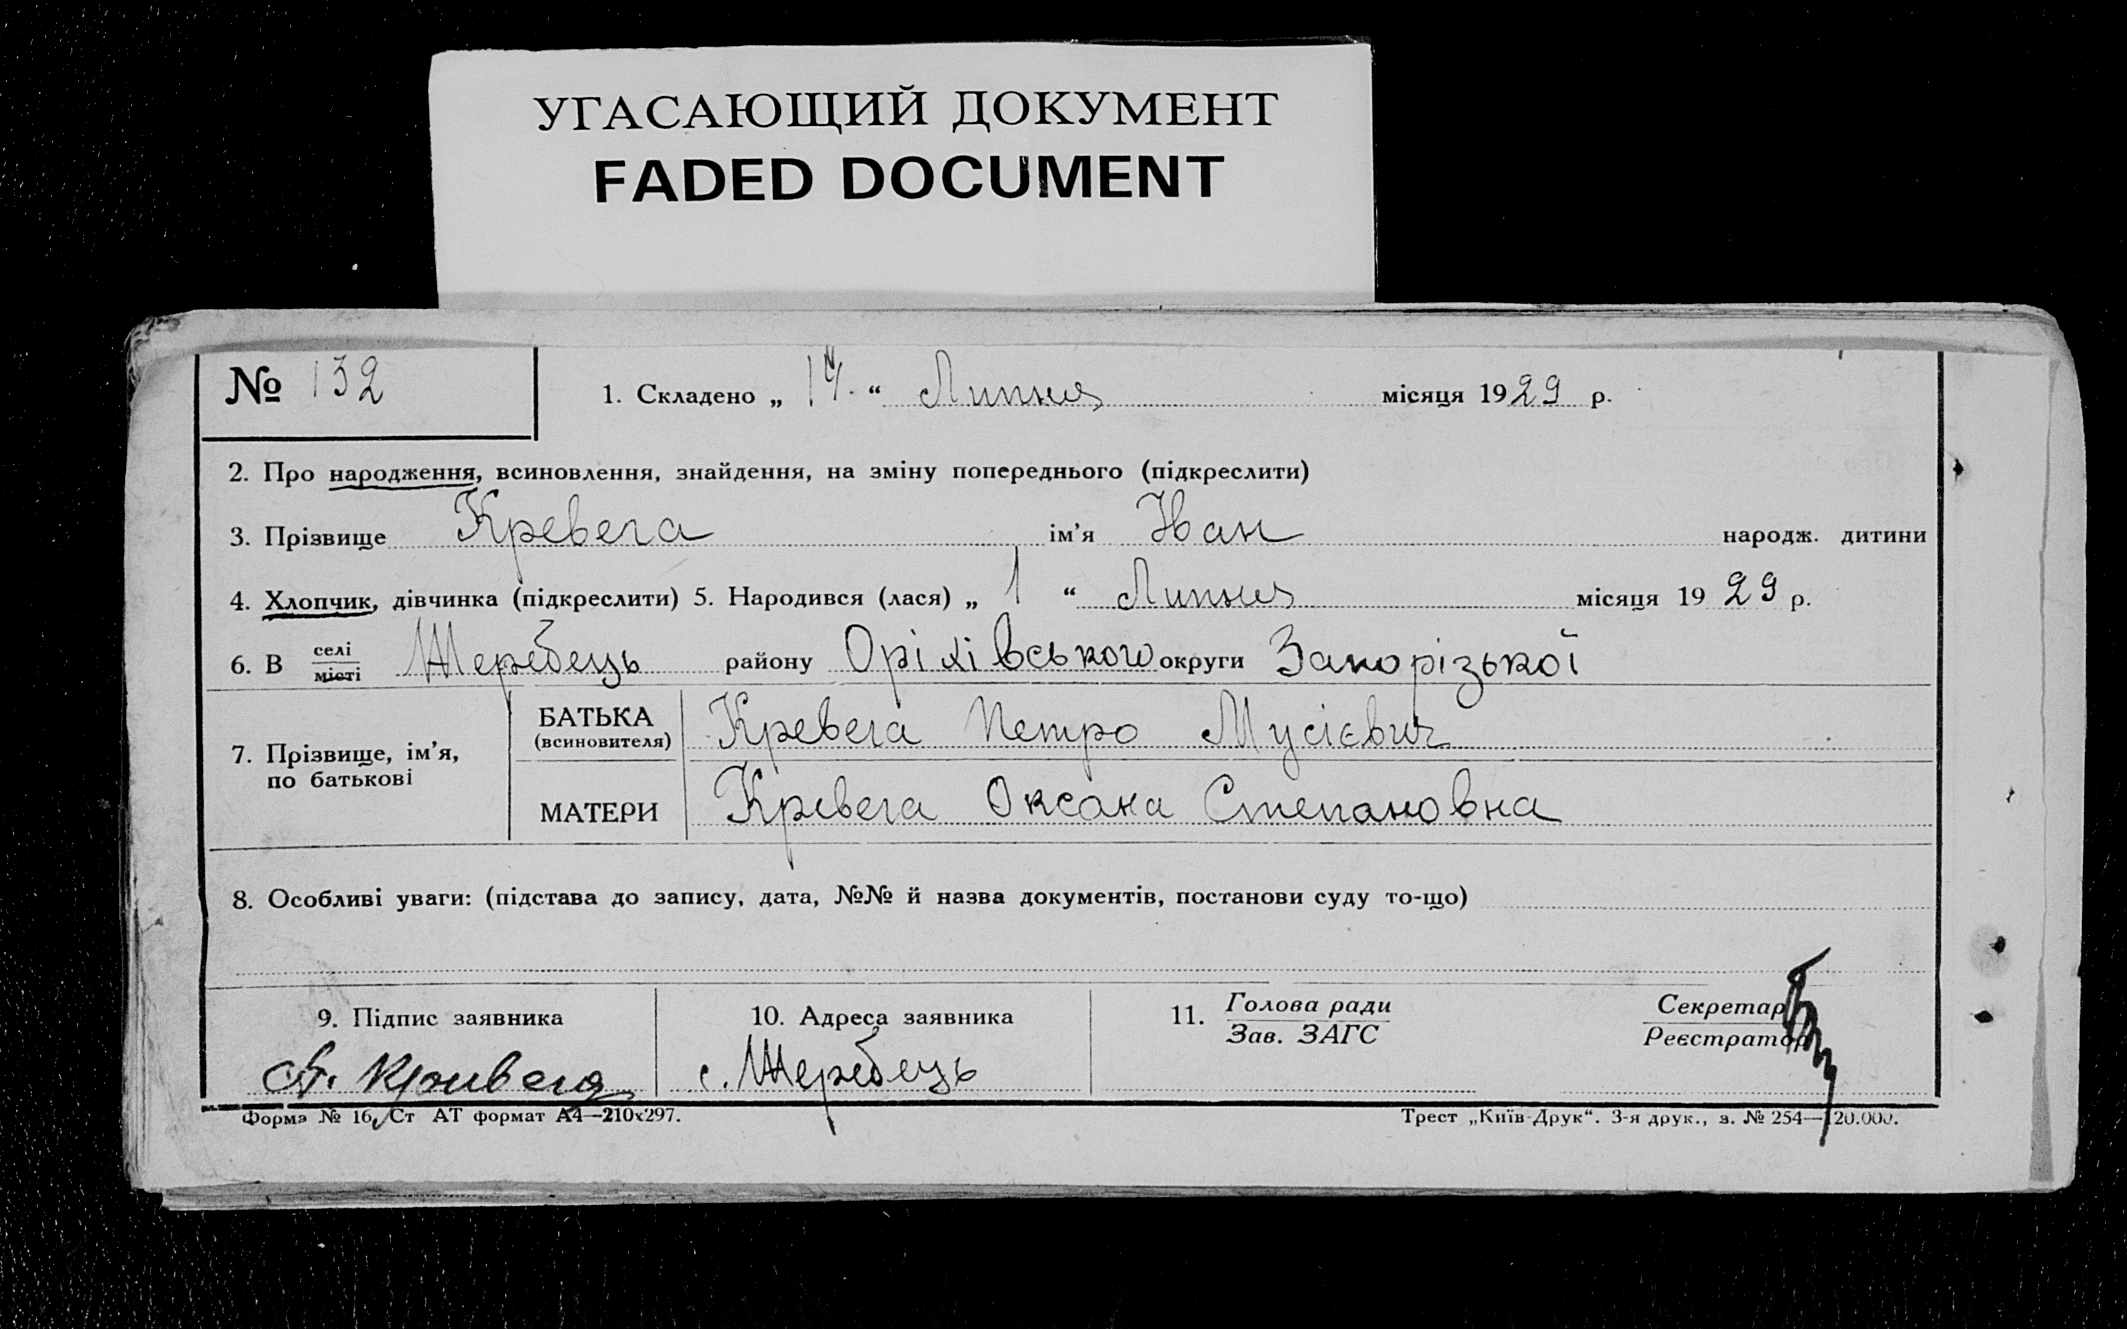 УГАСАЮЩИЙ ДОКУМЕНТ
FADED DOCUMENT
№ 132
1. Складено „ 14. “ Липня місяця 1929 р.
2. Про народження, всиновлення, знайдення, на зміну попереднього (підкреслити)
3. Прізвище Кревега ім'я Іван народж. дитини
4. Хлопчик, дівчинка (підкреслити) 5. Народився (лася) „ 1 “ Липня місяця 1929 р.
6. В селі
місті Жеребець району Оріхівського округи Запорізької
7. Прізвище, ім'я,
по батькові
БАТЬКА
(всиновителя) Кревега Петро Мусієвич
МАТЕРИ Кревега Оксана Степановна
8. Особливі уваги: (підстава до запису, дата, №№ й назва документів, постанови суду то-що)
9. Підпис заявника
Кривега
10. Адреса заявника
с. Жеребець
11. Голова ради
Зав. ЗАГС
Секретар
Реєстратор
Форма № 16, Ст АТ формат А4—210х297.
Трест „Київ-Друк“. 3-я друк., з. № 254—120.000.